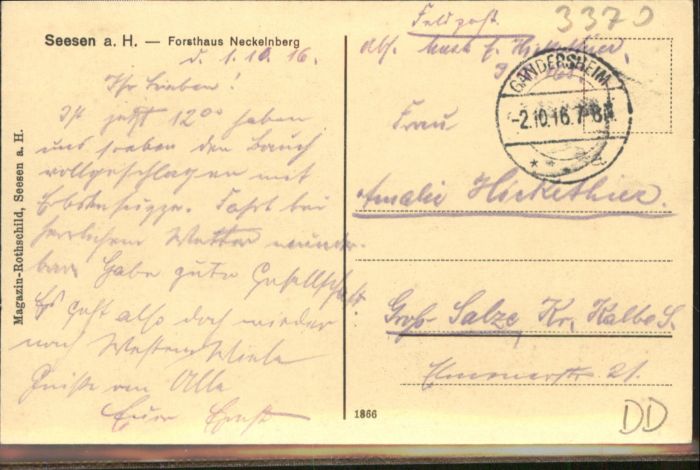 Seesen a. H. — Forsthaus Neckelnberg
d. 1.10.16.
Ihr Lieben!
Ist jetzt 12⁰⁰ haben
uns soeben den Bauch
vollgeschlagen mit
Erbsensuppe. Fahrt bei
herrlichem Wetter wunder-
bar. Habe gute Gesellschaft.
Es geht also doch wieder
nach Westen. Viele
Grüße an Alle
Euer Ernst
Magazin-Rothschild, Seesen a. H.
1866
Feldpost
3370
Abs. Musk. E. Hickethier,
GANDERSHEIM
-2.10.16.7-8N.
Frau
Amalie Hickethier.
Groß-Salze Kr. Kalbe S.
21.
DD